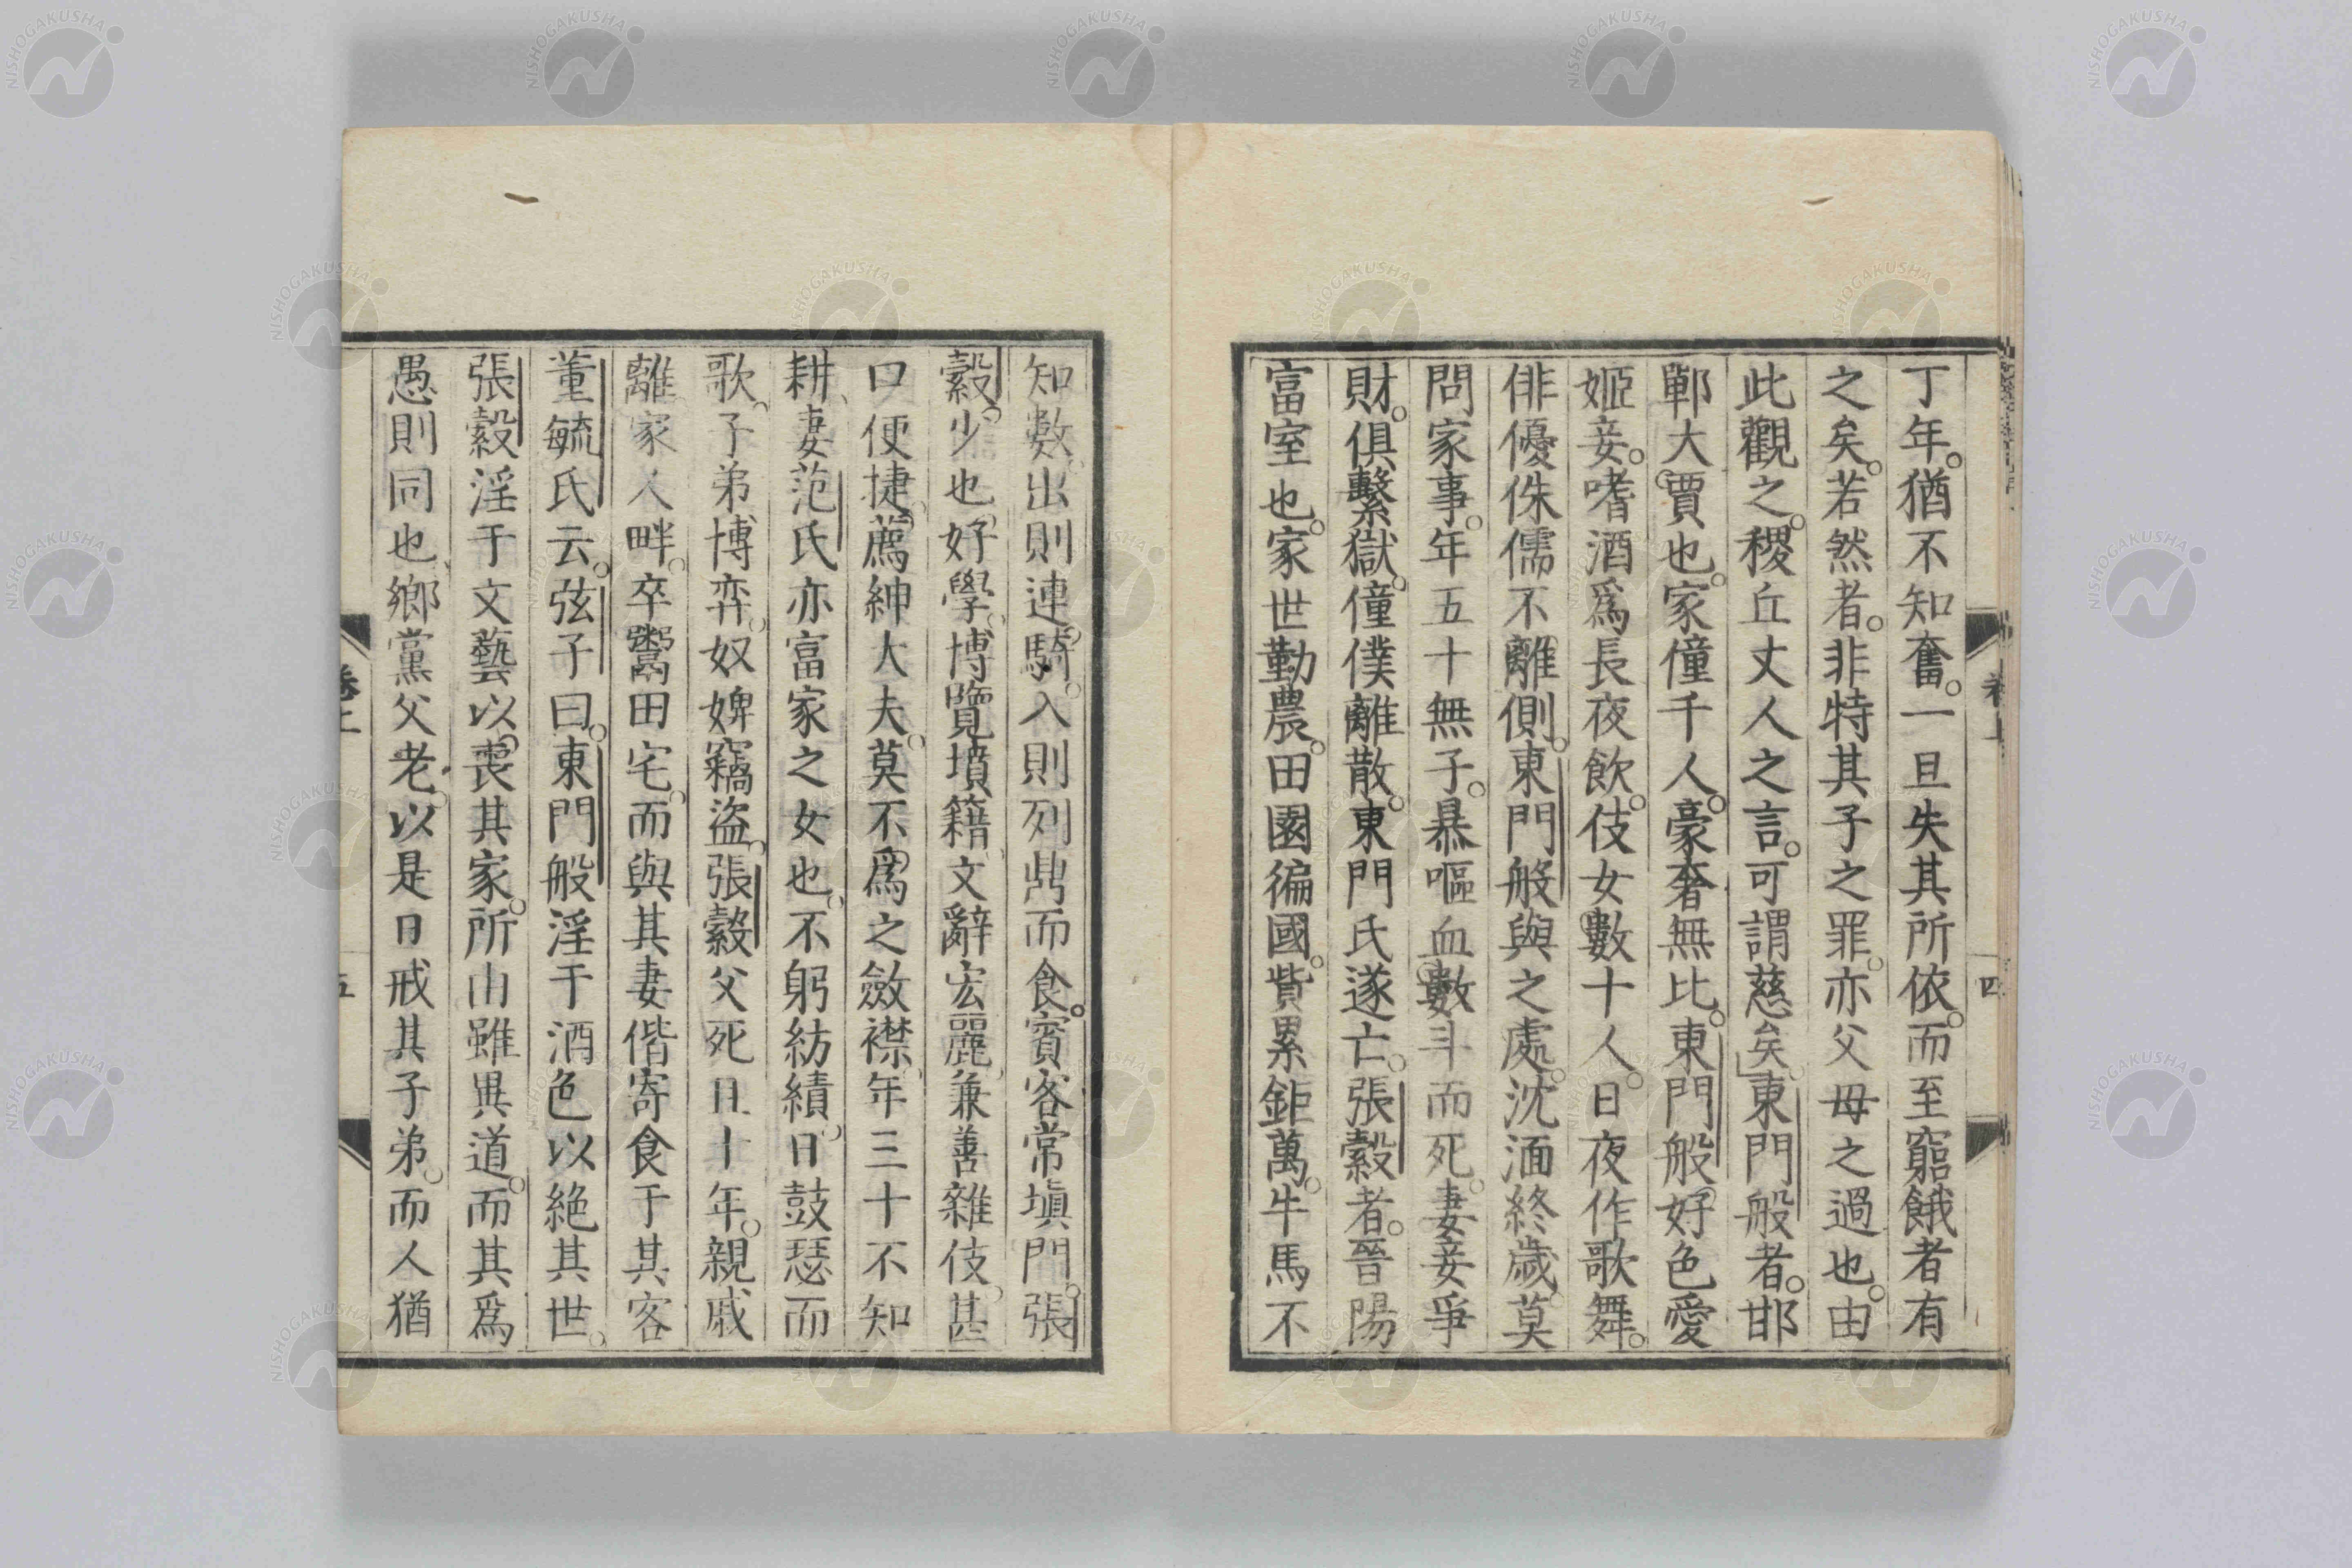 丁年。猶不知奮。一旦失其所依。而至窮餓者有
之矣。若然者。非特其子之罪。亦父母之過也。由
此觀之。稷丘丈人之言。可謂慈矣」東門般者。邯
鄲大賈也。家僮千人。豪奢無比。東門般好色愛
姬妾。嗜酒爲長夜飲。伎女數十人。日夜作歌舞。
俳優侏儒不離側。東門般與之處。沈湎終歲。莫
問家事。年五十無子。暴嘔血數斗而死。妻妾爭
財。俱繫獄。僮僕離散。東門氏遂亡。張縠者。晉陽
富室也。家世勤農。田園徧國。貲累鉅萬。牛馬不
卷上
四
知數。出則連騎。入則列鼎而食。賓客常塡門。張
縠少也。好學。博覽墳籍。文辭宏麗。兼善雜伎。甚
口便捷。薦紳大夫。莫不爲之斂襟。年三十不知
耕。妻范氏亦富家之女也。不躬紡績。日鼓瑟而
歌。子弟博弈。奴婢竊盜。張縠父死且十年。親戚
離家人畔。卒鬻田宅。而與其妻偕寄食于其客
董毓氏云。弦子曰。東門般淫于酒色以絶其世。
張縠淫于文藝以喪其家。所由雖異道。而其爲
愚則同也。鄉黨父老。以是日戒其子弟。而人猶
卷上
五
NISHOGAKUSHA